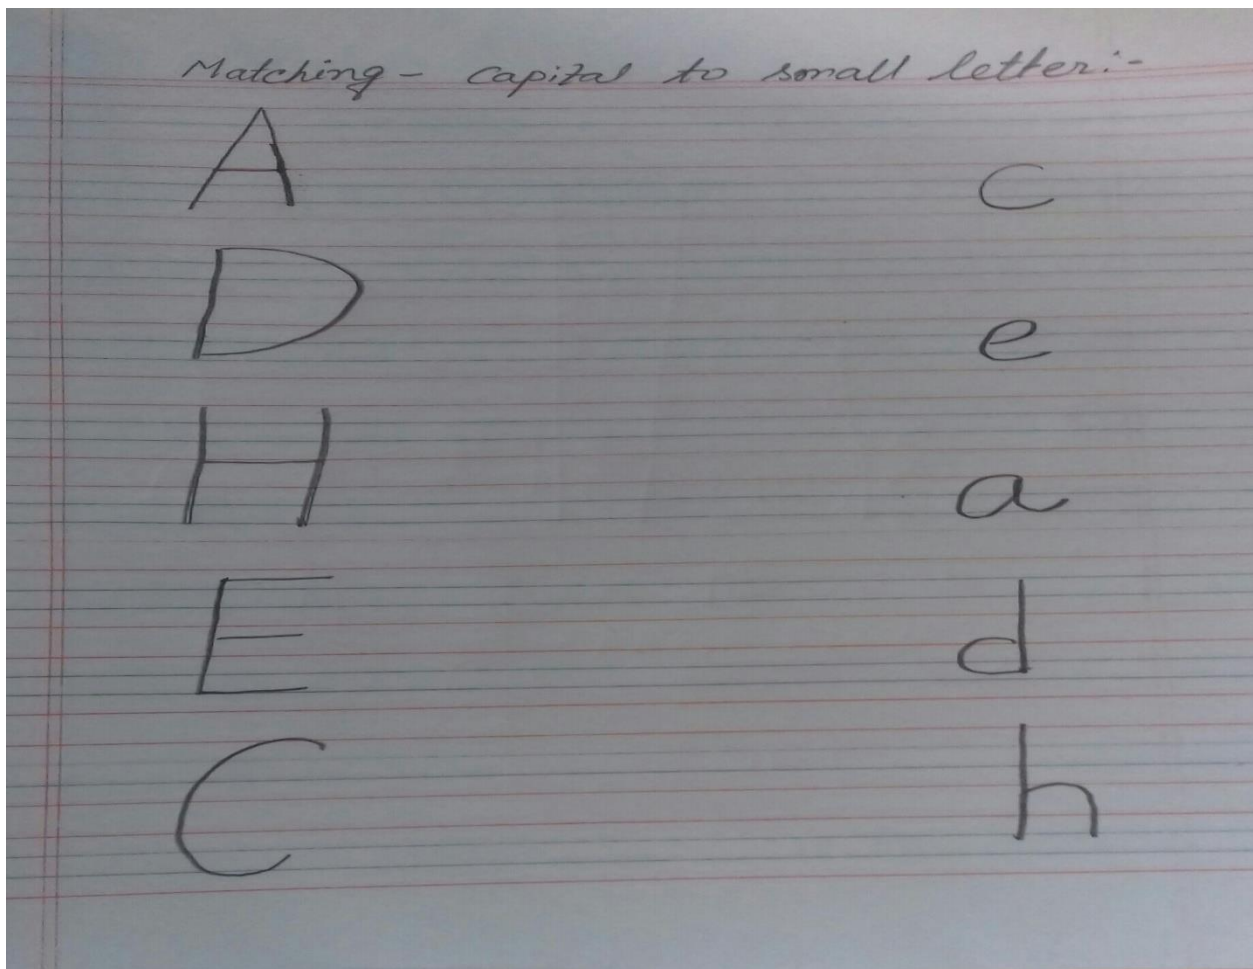 Matching - Capital to small letter:-
A c
D e
H a
E d
C h